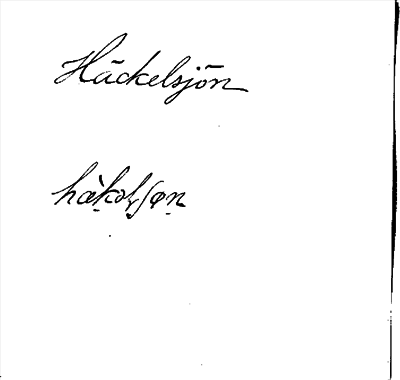 Häckelsjön
hæ̀ḳəlʃøṇ